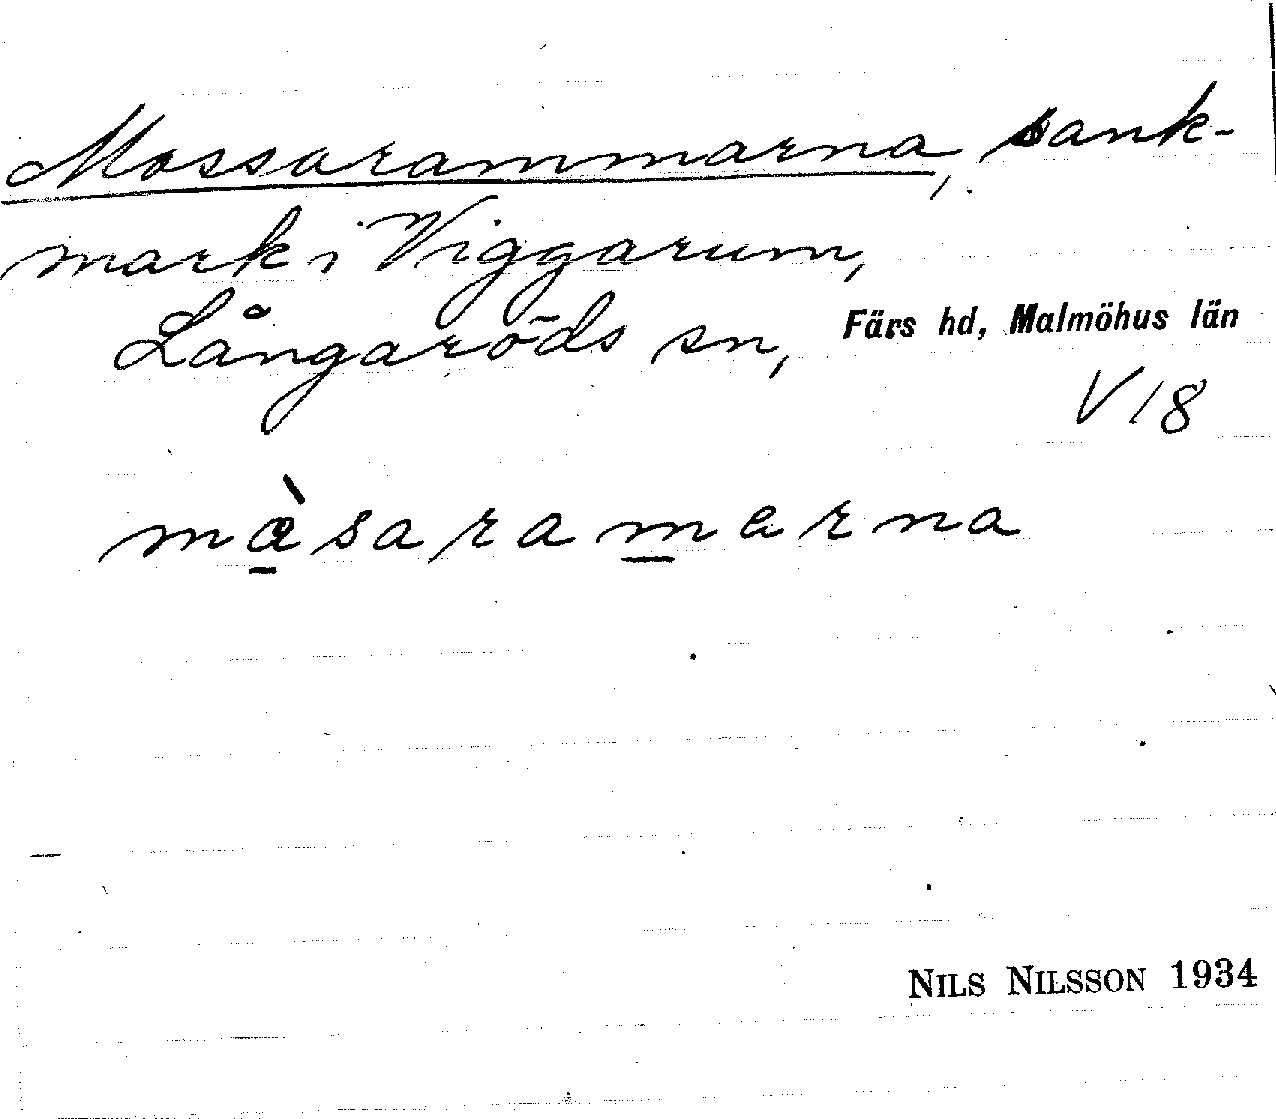 Mossarammarna, sank-
mark i Viggarum,
Långaröds sn, Färs hd, Malmöhus län
V 18
màsaramarna
NILS NILSSON 1934